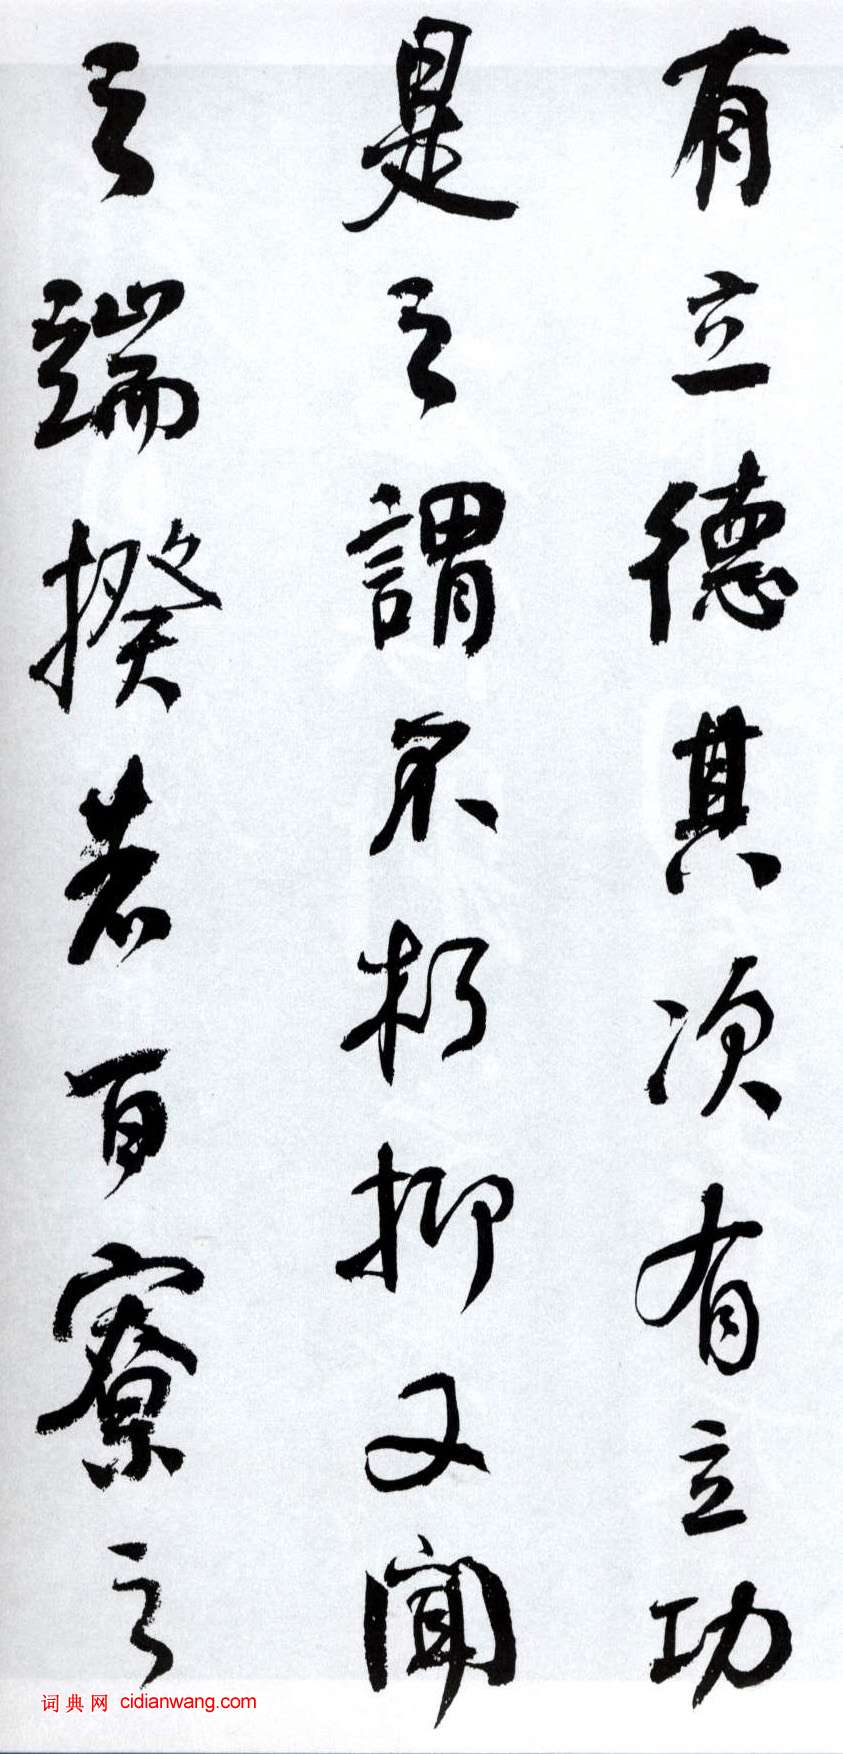 有立德其次有立功
是之謂不朽抑又聞
之端揆者百寮之
词典网 cidianwang.com